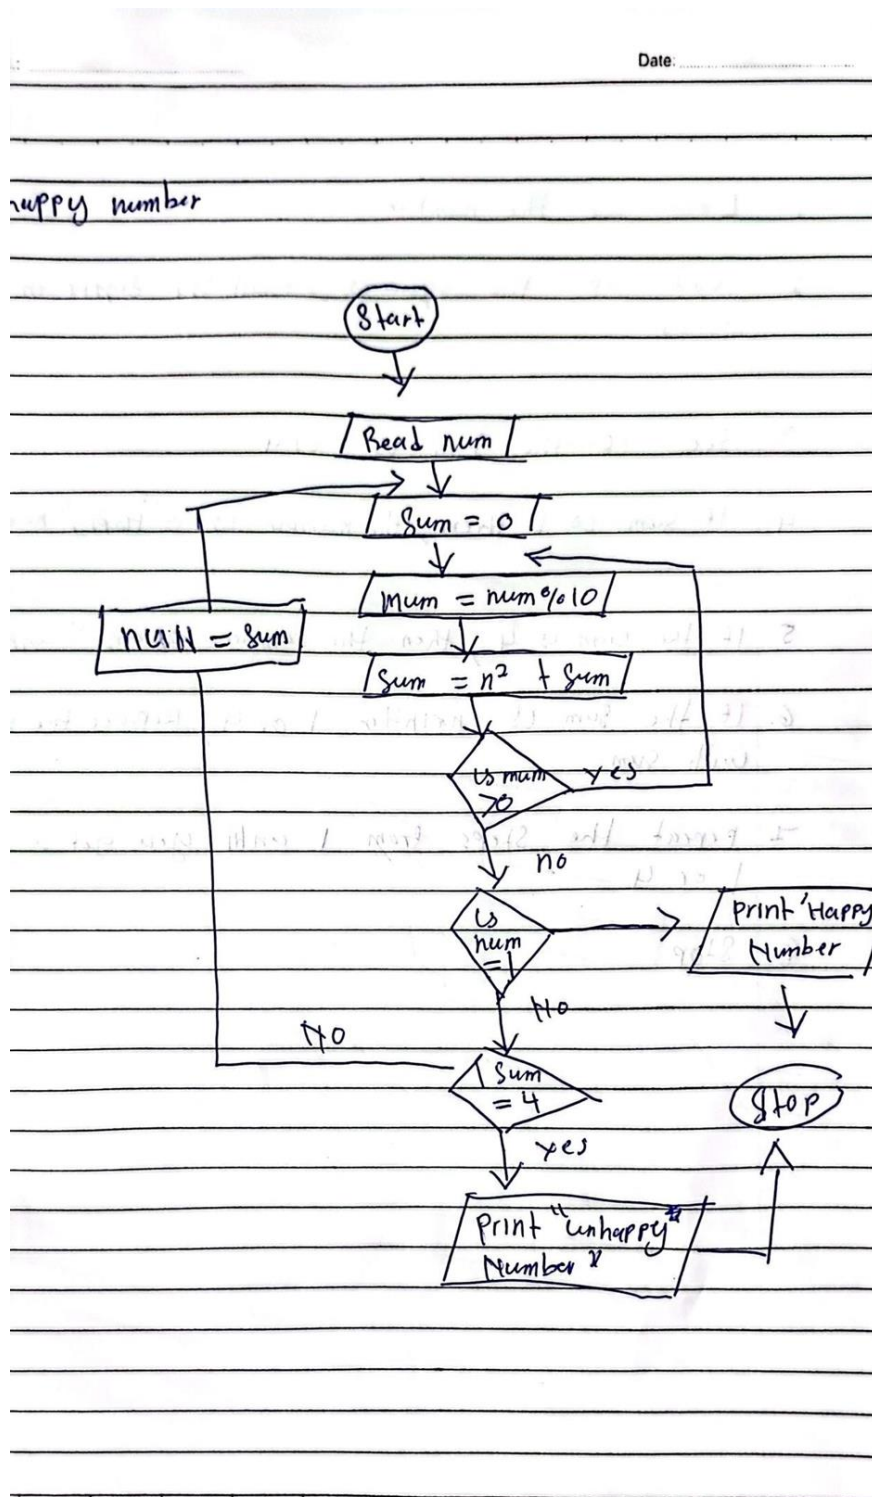 Date:
happy number
Start
Read num
Sum = 0
Mum = num%10
num = Sum
Sum = n² + Sum
is mum
>0
yes
no
is
num
=1
print 'Happy
Number
No
No
Sum
= 4
Stop
yes
print "unhappy"
Number"